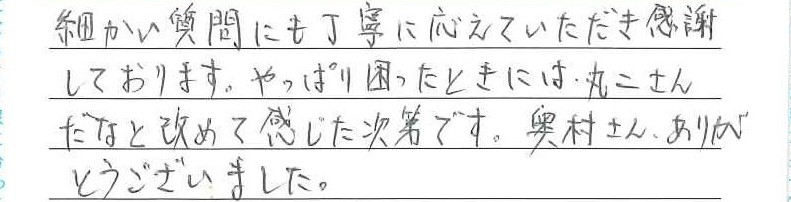 細かい質問にも丁寧に応えていただき感謝
しております。やっぱり困ったときには、丸二さん
だなと改めて感じた次第です。奥村さん、ありが
とうございました。